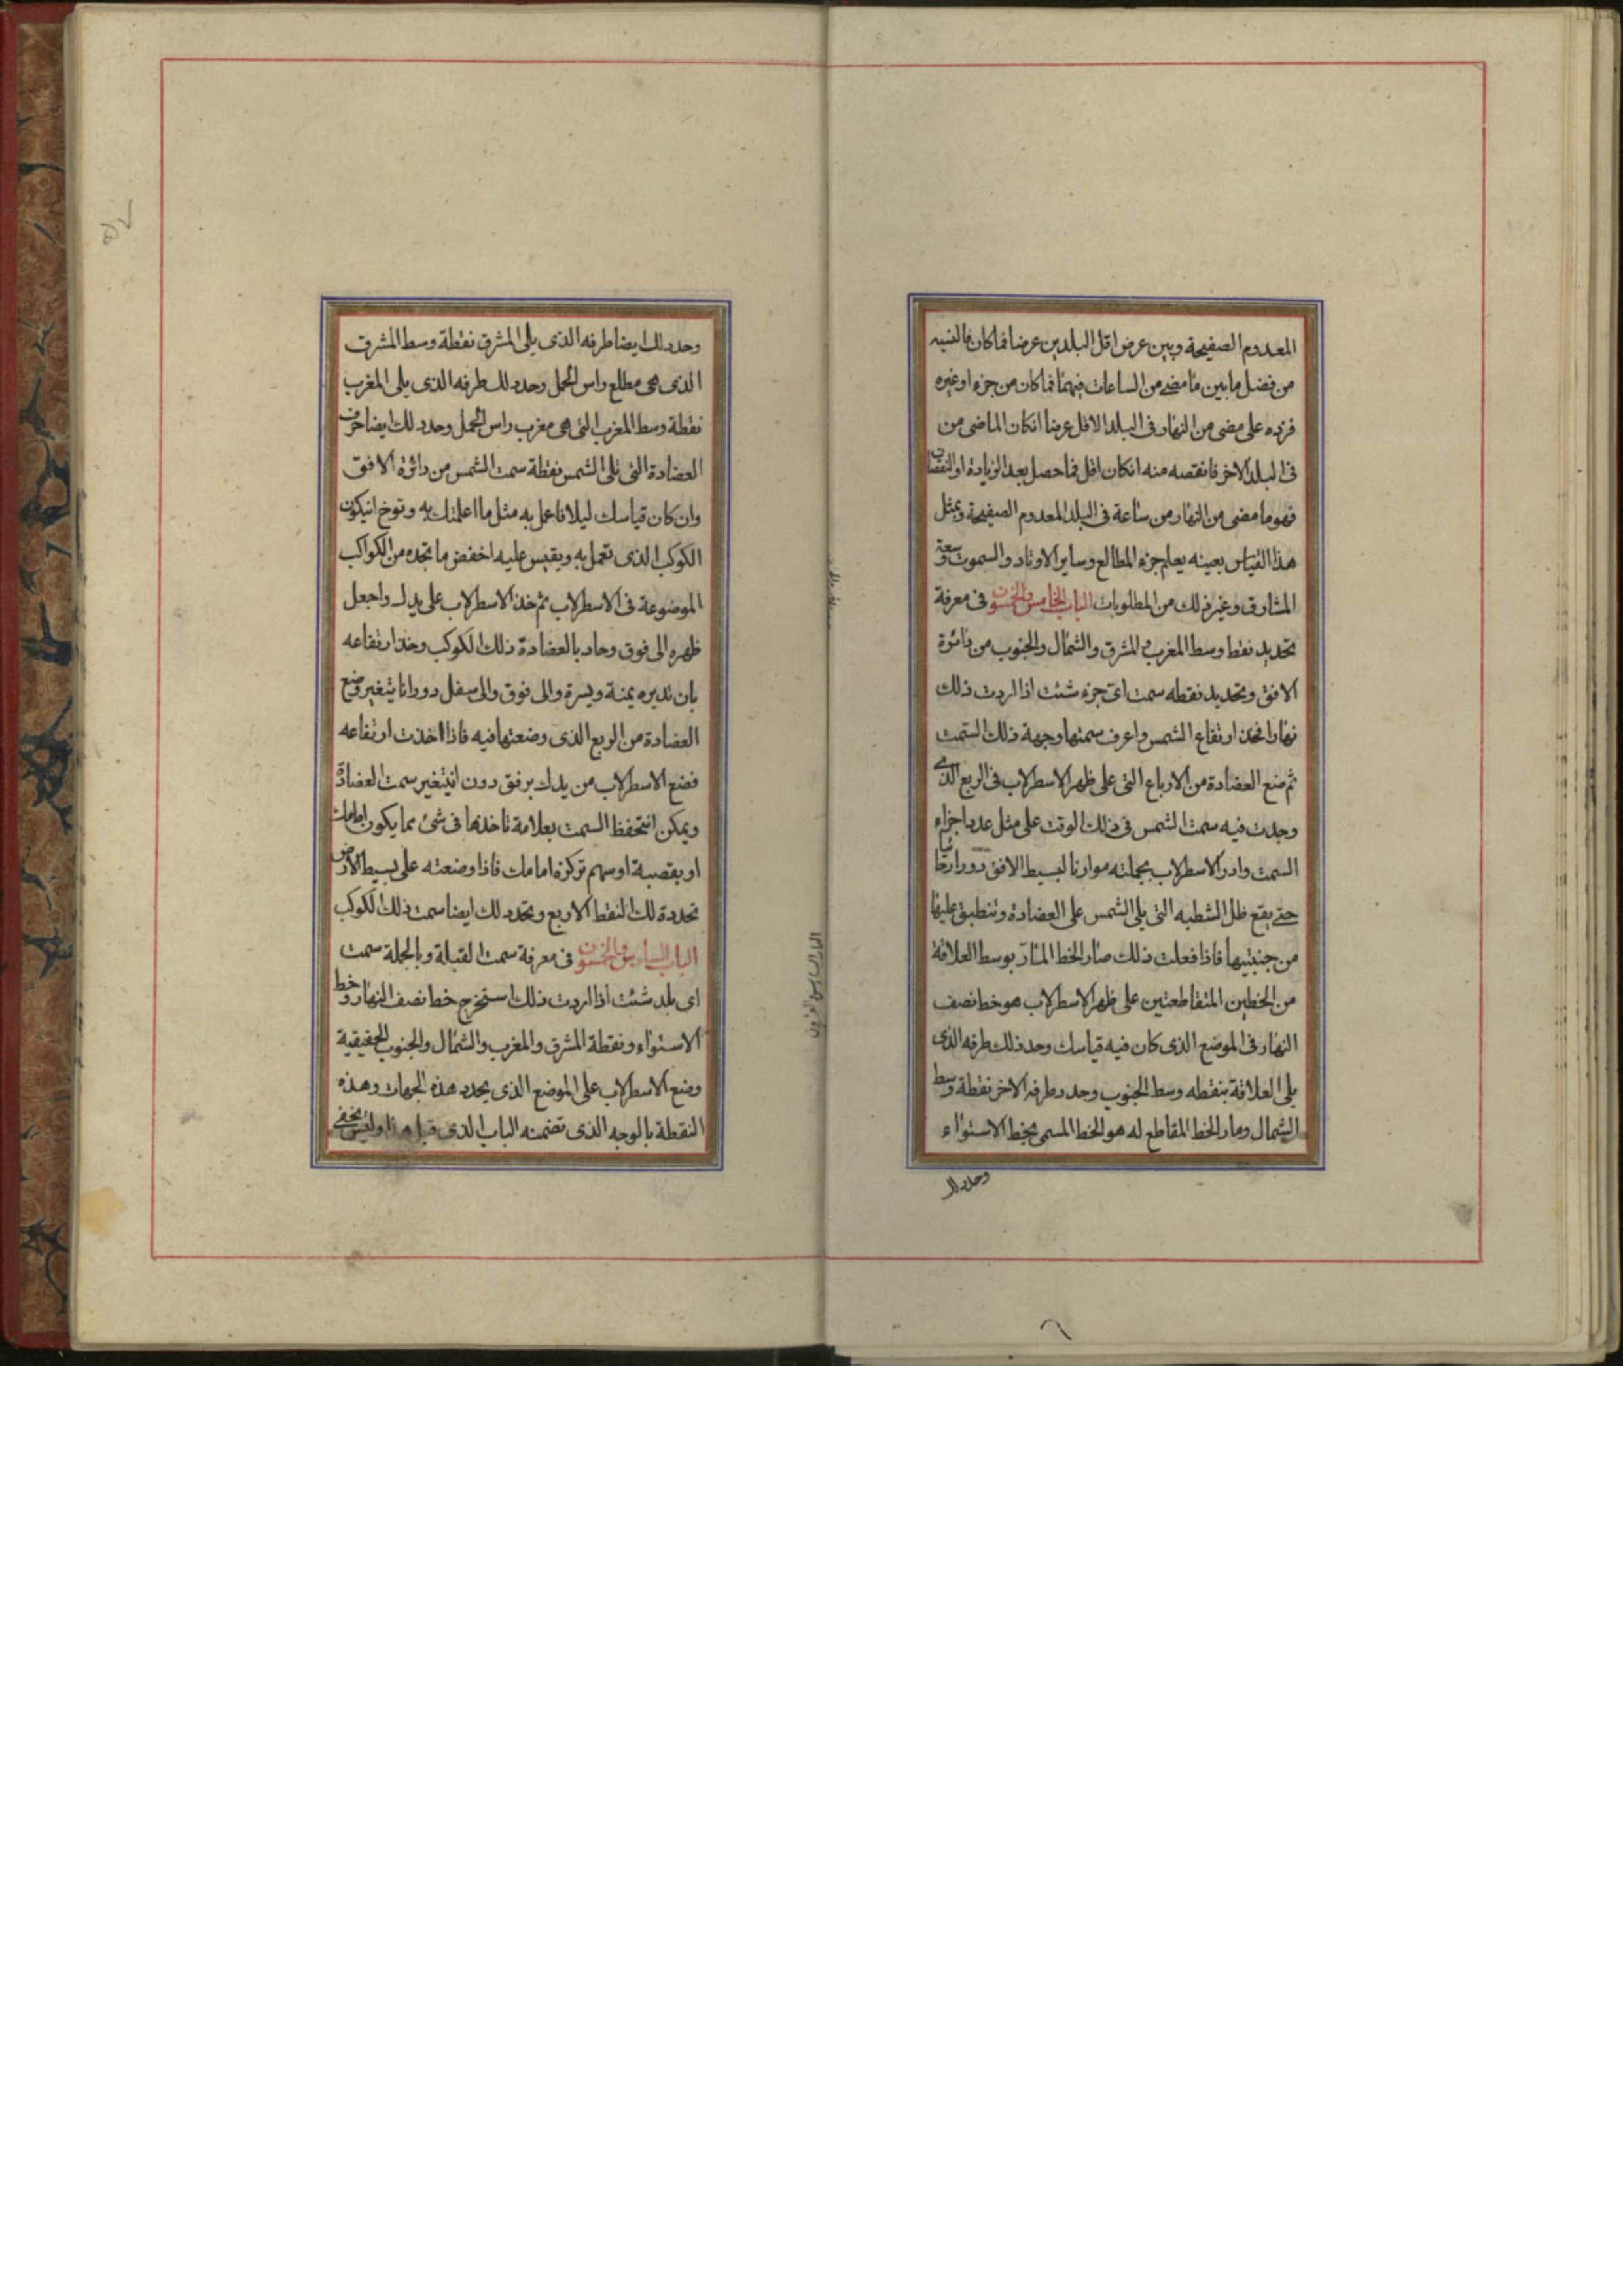 المعدوم الصفيحة وبين عرض اقل البلدين عرضا فما كان فالنسبه
من فضل ما بين ما مضى من الساعات فيهما فما كان من جزء او غيره
فزده على مضى من النهار فى البلد الاقل عرضا انكان الماضى من
فى البلد الاخر فانقصه منه انكان اقل فما حصل بعد الزيادة او النقصان
فهو ما مضى من النهار من ساعة فى البلد المعدوم الصفيحة وبمثل
هذا القياس بعينه يعلم جزء المطالع وساير الاوتاد والسموت وسعة
المشارق وغير ذلك من المطلوبات الباب الخامس والخمسون فى معرفة
تحديد نقط وسط المغرب والمشرق والشمال والجنوب من دائرة
الافق وتحديد نقطه سمت اى جزء شئت اذا اردت ذلك
نهارا فخذ ارتفاع الشمس واعرف سمتها وجهة ذلك السمت
ثم ضع العضادة من الارباع التى على ظهر الاسطرلاب فى الربع الذى
وجدت فيه سمت الشمس فى ذلك الوقت على مثل عدد اجزاء
السمت وادر الاسطرلاب بجملته موازنا لبسيط الافق دورا رتقا
حتى يقع ظل الشطبه التى يلى الشمس على العضادة وتنطبق عليها
من جنبتيها فاذا فعلت ذلك صار الخط المار بوسط العلاقة
من الخطين المتقاطعتين على ظهر الاسطرلاب هو خط نصف
النهار فى الموضع الذى كان فيه قياسك وحد ذلك طرفه الذى
يلى العلاقة بنقطه وسط الجنوب وحدد طرفه الاخر نقطة وسط
الشمال وصار الخط المقاطع له هو الخط المسمى بخط الاستواء
وحدد لك
وحدد لك ايضا طرفه الذى يلى المشرق نقطة وسط المشرق
الذى هى مطلع راس الحمل وحدد لك طرفه الذى يلى المغرب
نقطة وسط المغرب التى هى مغرب راس الحمل وحدد لك ايضا حرف
العضادة التى تلى الشمس نقطة سمت الشمس من دائرة الافق
وان كان قياسك ليلا فاعمل به مثل ما اعلمتك به وتوخ انيكون
الكوكب الذى تعمل به ويقيس عليه اخفض ما تجده من الكواكب
الموضوعة فى الاسطرلاب ثم خذ الاسطرلاب على يدك واجعل
ظهره الى فوق وحاد بالعضادة ذلك الكوكب وخذ ارتفاعه
بان تديره يمنة ويسرة والى فوق والى سفل دورانا يتغير وضع
العضادة من الربع الذى وضعتها فيه فاذا اخذت ارتفاعه
فضع الاسطرلاب من يدك برفق دون انيتغير سمت العضادة
ويمكن انتحفظ السمت بعلامة تاخذها فى شئ مما يكون امامك
او بقصبة او سهم تركزه امامك فاذا وضعته على بسيط الارض
تحددة لك النقط الاربع وتحدد لك ايضا سمت ذلك الكوكب
الباب السادس والخمسون فى معرفة سمت القبلة وبالجملة سمت
اى بلد شئت اذا اردت ذلك استخرج خط نصف النهار وخط
الاستواء ونقطة المشرق والمغرب والشمال والجنوب الحقيقية
وضع الاسطرلاب على الموضع الذى يحدد هذه الجهات وهذه
النقطة بالوجه الذى تضمنه الباب الذى قبل هذا وليس يخفى